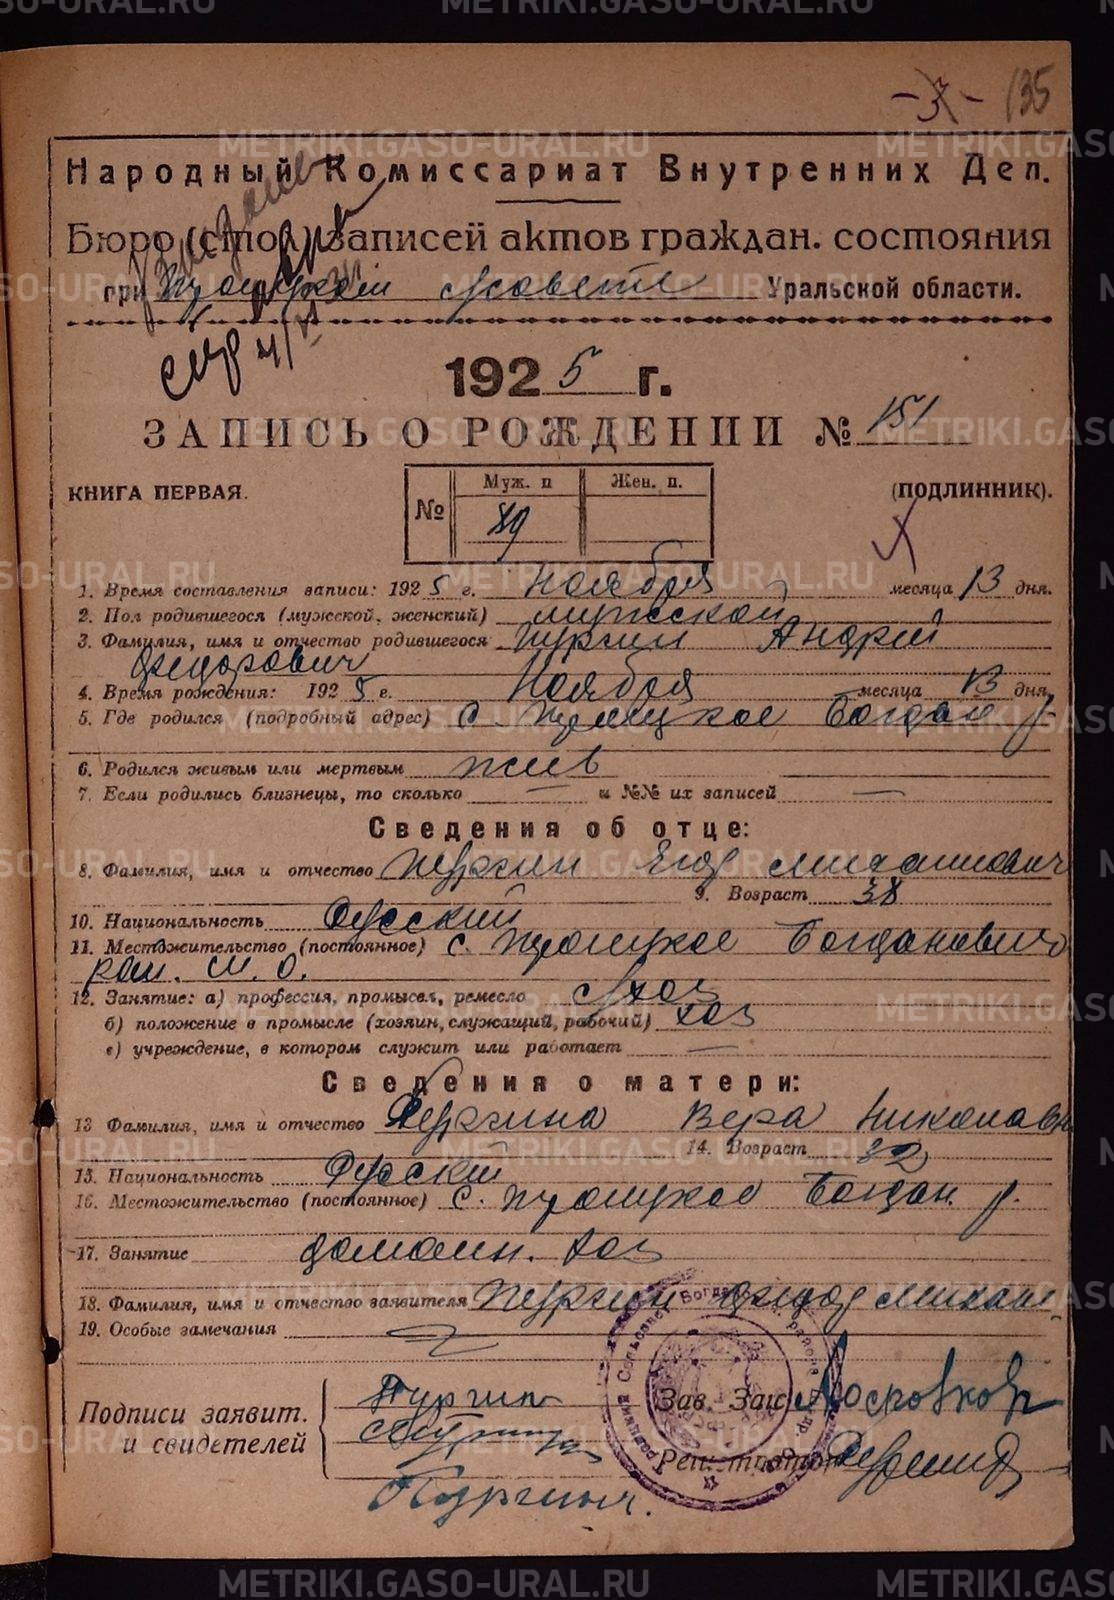 135
Народный Комиссариат Внутренних Дел.
Бюро (стол) записей актов граждан. состояния
при Троицком с/совете Уральской области.
1925 г.
ЗАПИСЬ О РОЖДЕНИИ № 151
КНИГА ПЕРВАЯ. (ПОДЛИННИК).
№ Муж. п Жен. п.
89
1. Время составления записи: 1925 г. Ноября месяца 13 дня.
2. Пол родившегося (мужской, женский) мужской
3. Фамилия, имя и отчество родившегося Пургин Андрей
Федорович
4. Время рождения: 1925 г. Ноября месяца 13 дня.
5. Где родился (подробный адрес) с. Троицкое Богдан р.
6. Родился живым или мертвым жив
7. Если родились близнецы, то сколько — и №№ их записей —
Сведения об отце:
8. Фамилия, имя и отчество Пургин Егор Михайлович
9. Возраст 38
10. Национальность Русский
11. Местожительство (постоянное) с. Троицкое Богданович
рай.
12. Занятие: а) профессия, промысел, ремесло с/хоз
б) положение в промысле (хозяин, служащий, рабочий) хоз
в) учреждение, в котором служит или работает —
Сведения о матери:
13 Фамилия, имя и отчество Пургина Вера Николавн
14. Возраст 32
15. Национальность Русский
16. Местожительство (постоянное) с. Троицкое Богдан. р.
17. Занятие домашн. хоз
18. Фамилия, имя и отчество заявителя Пургин Федор Михаил
19. Особые замечания
Подписи заявит. и свидетелей
Пургин
Зав. Загс
Регистратор
Пургин